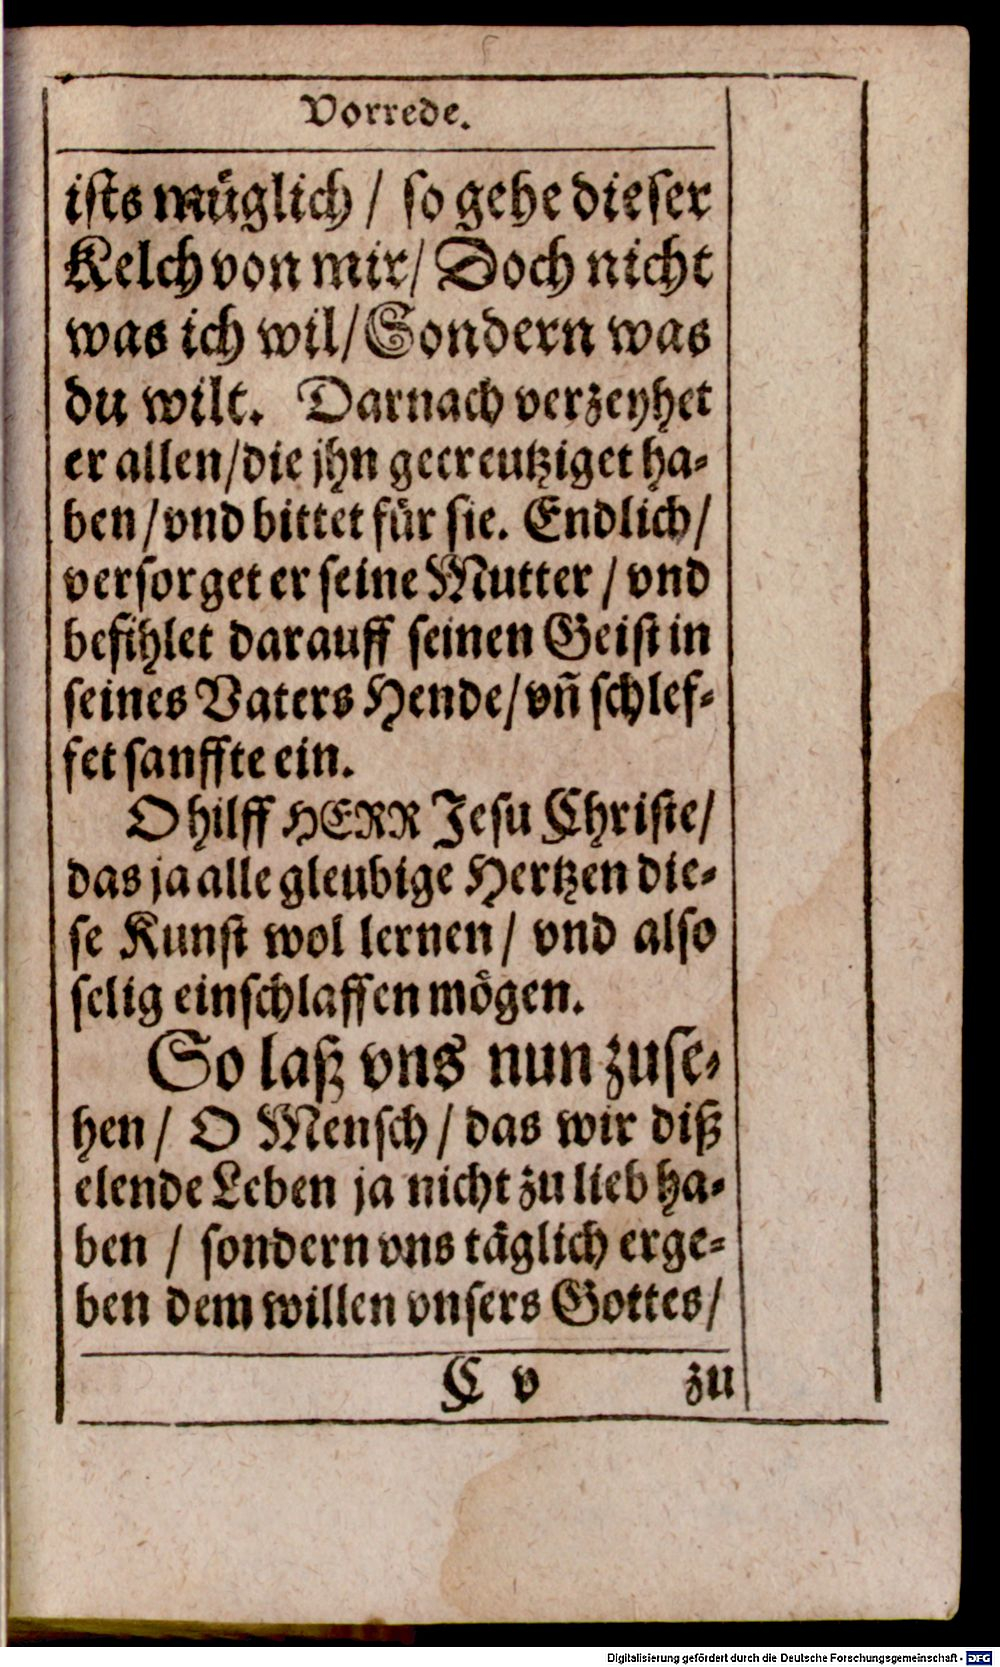 Vorrede.
ists müglich / so gehe dieser
Kelch von mir / Doch nicht
was ich wil / Sondern was
du wilt. Darnach verzeyhet
er allen / die jhn gecreutziget ha-
ben / vnd bittet für sie. Endlich /
versorget er seine Mutter / vnd
befihlet darauff seinen Geist in
seines Vaters Hende / vñ schlef-
fet sanffte ein.
O hilff HERR Jesu Christe /
das ja alle gleubige Hertzen die-
se Kunst wol lernen / vnd also
selig einschlaffen mögen.
So laß vns nun zuse-
hen / O Mensch / das wir diß
elende Leben ja nicht zu lieb ha-
ben / sondern vns täglich erge-
ben dem willen vnsers Gottes /
C v zu
Digitalisierung gefördert durch die Deutsche Forschungsgemeinschaft - DFG